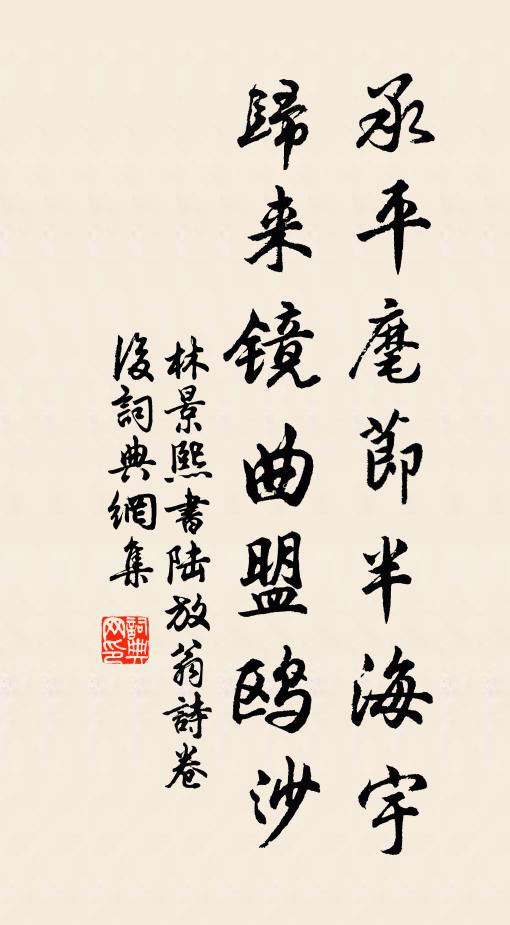 承平麾節半海宇
歸来鏡曲盟鸥沙
林景熙書陆放翁詩卷
後詞典網集
詞典
网印